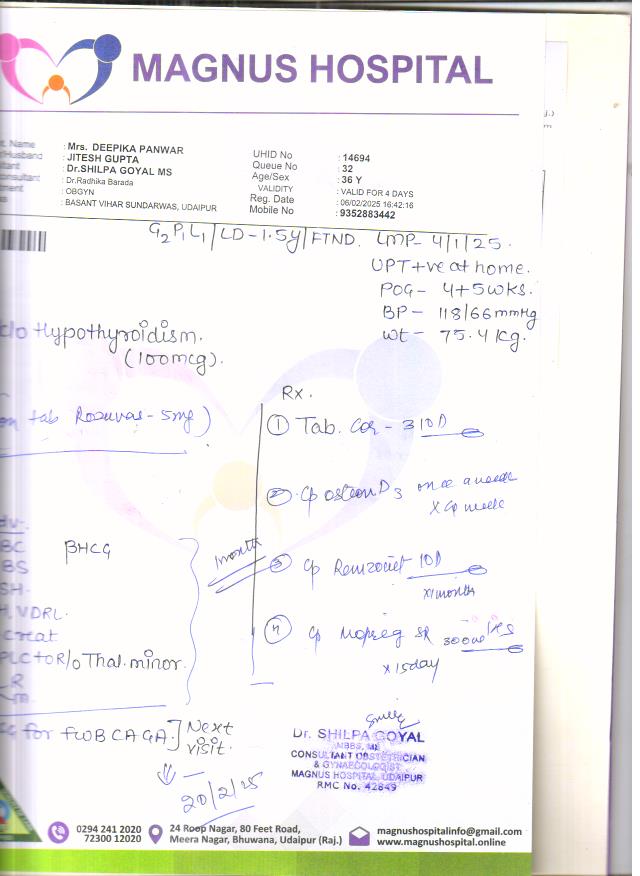 MAGNUS HOSPITAL
t. Name : Mrs. DEEPIKA PANWAR
/Husband : JITESH GUPTA
tant : Dr.SHILPA GOYAL MS
onsultant : Dr.Radhika Barada
tment : OBGYN
s : BASANT VIHAR SUNDARWAS, UDAIPUR
UHID No : 14694
Queue No : 32
Age/Sex : 36 Y
VALIDITY : VALID FOR 4 DAYS
Reg. Date : 06/02/2025 16:42:16
Mobile No : 9352883442
G2P1L1/LD-1.5y/FTND. LMP- 4/1/25.
UPT+ve at home.
POG- 4+5 wks.
BP- 118/66mmHg
wt- 75.4 kg.
c/o Hypothyroidism.
(100mcg).
on tab Rosuvas-5mg)
Rx.
① Tab. - 3 10D
② Cp D3 once a week
③ Cp 10D
x1month
④ Cp SR 300
x 15day
1month
adv-.
BC βHCG
BS
SH.
H, VDRL.
Creat
PLC to R/o Thal. minor.
R
m
for FWB CA GA.] Next visit.
20/2/25
Dr. SHILPA GOYAL
MBBS, MS
CONSULTANT OBSTETRICIAN
& GYNAECOLOGIST
MAGNUS HOSPITAL, UDAIPUR
RMC No. 42849
0294 241 2020
72300 12020
24 Roop Nagar, 80 Feet Road,
Meera Nagar, Bhuwana, Udaipur (Raj.)
magnushospitalinfo@gmail.com
www.magnushospital.online